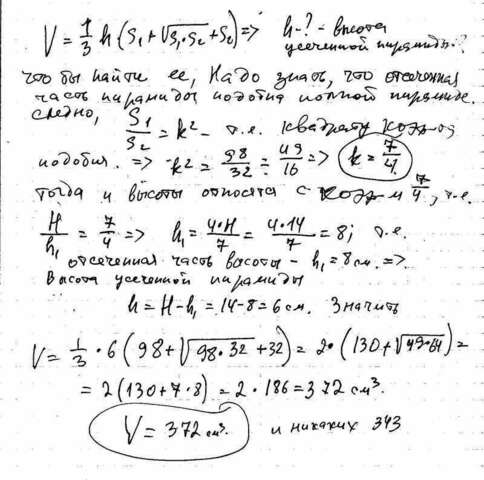 V = 1/3 h (S₁ + √S₁·S₂ + S₂) => h - ? - высота
усеченной пирамиды?
что бы найти ее, надо знать, что отсеченная
часть пирамиды подобна полной пирамиде.
следно, S₁/S₂ = k² - т.е. квадрату коэф-а
подобия. => k² = 98/32 = 49/16 => k = 7/4
тогда и высоты относятся с коэф-м 7/4, т.е.
H/h₁ = 7/4 => h₁ = 4·H/7 = 4·14/7 = 8; т.е.
отсеченная часть высоты - h₁ = 8 см. =>
Высота усеченной пирамиды
h = H - h₁ = 14 - 8 = 6 см. Значить
V = 1/3 · 6 (98 + √98·32 + 32) = 2·(130 + √49·64) =
= 2(130 + 7·8) = 2·186 = 372 см³.
V = 372 см³. и никаких 343